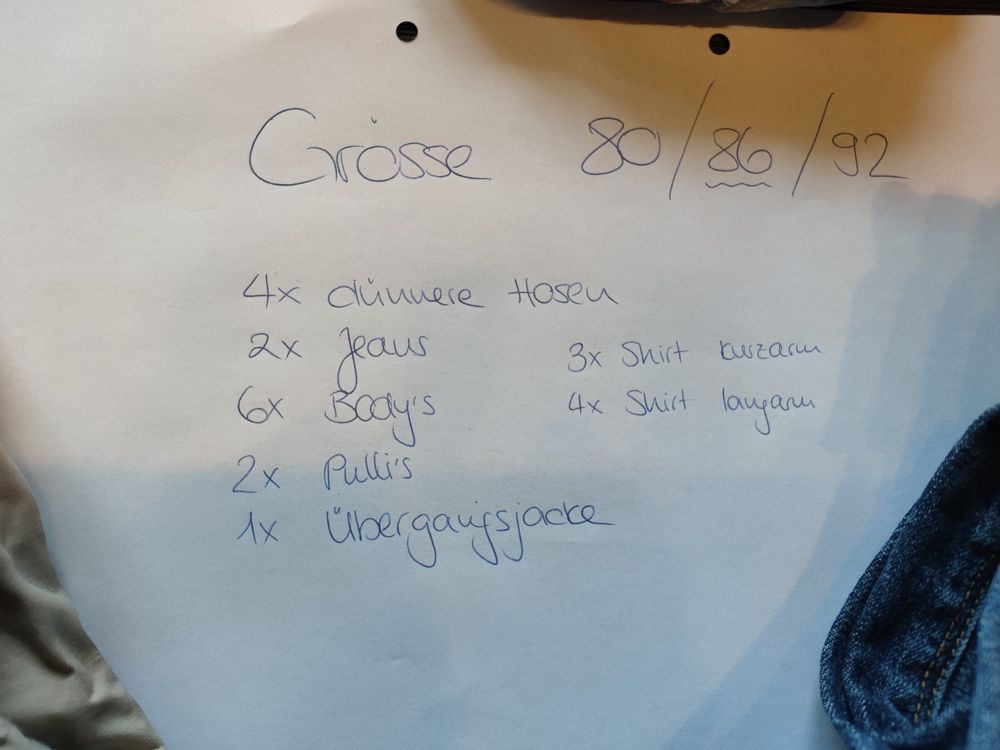 Grösse 80/86/92
4x dünnere Hosen
2x Jeans
3x Shirt kurzarm
6x Body's
4x Shirt langarm
2x Pulli's
1x Übergangsjacke